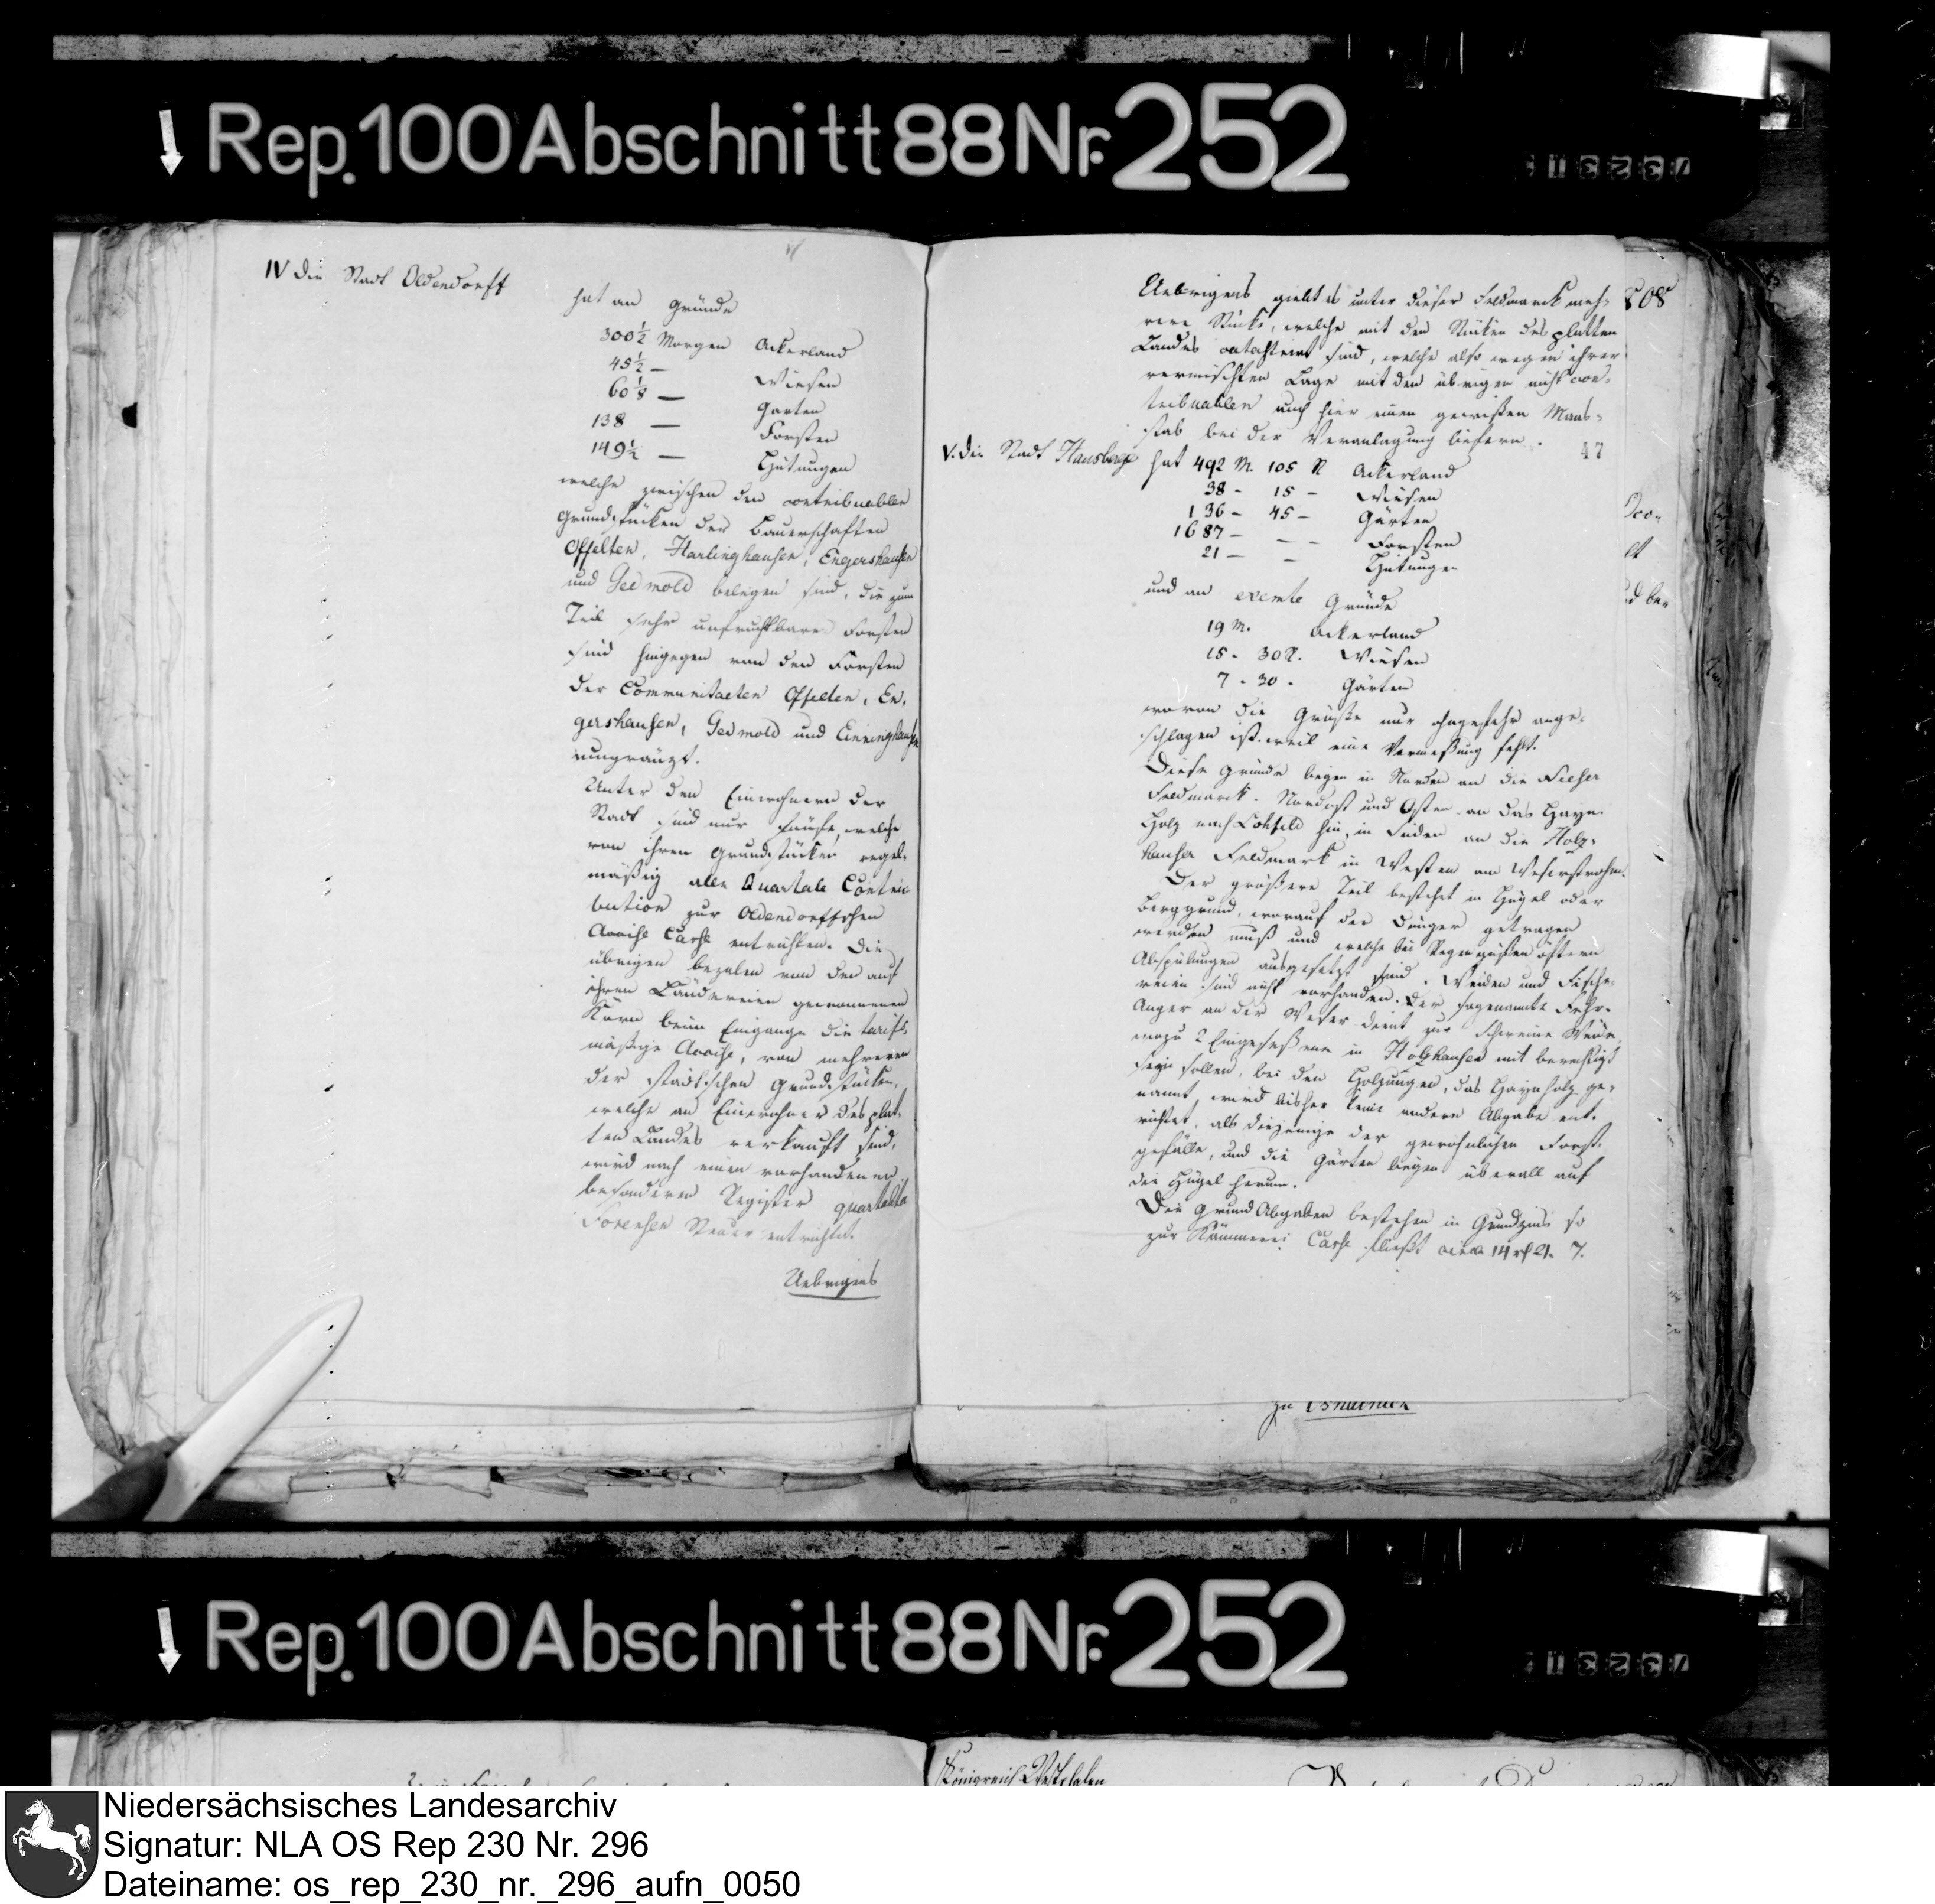 Rep. 100 Abschnitt 88 Nr. 252
IV die Stadt Oldendorff
hat an Gründe
300½ Morgen Ackerland
45½ — Wiesen
60⅛ — Garten
138 — Forsten
149½ — Hütungen
welche zwischen den contribuablen
Grundstücken der Bauerschaften
Offelten, Harlinghausen, Engershausen
und Getmold belegen sind, die zum
Teil sehr unfruchtbare Forsten
sind hingegen von den Forsten
der Communitaeten Offelten, En-
gershausen, Getmold und Eininghausen
umgränzt.
Unter den Einwohnern der
Stadt sind nur fünfe, welche
von ihren Grundstücken regel-
mäßig alle Quartale Contri-
bution zur Oldendorffschen
Accise Casse entrichten. Die
übrigen bezalen von der auf
ihren Ländereien gewonnenen
Korn beim Eingange die tarif-
mäßige Accise, von mehreren
der städtischen Grundstücken,
welche an Einwohner des plat-
ten Landes verkauft sind,
wird nach einen vorhandenen
besonderen Register quartaliter
Forensen Steuer entrichtet.
Uebrigens
Uebrigens giebt es unter dieser Feldmarck meh-
rere Stücke, welche mit den Stücken des platten
Landes catastrirt sind, welche also wegen ihrer
vermischten Lage mit den übrigen nicht con-
tribuablen auch hier einen gewissen Maas-
stab bei der Veranlagung liefern.
208
47
V. die Stadt Hausberge hat 492 M. 105 R Ackerland
38 - 15 - Wiesen
136 - 45 - Gärten
1687 - - - Forsten
21 - - Hütungen
und an exemte Gründe
19 M. Ackerland
15 - 30 R. Wiesen
7 - 30 - Gärten
wovon die Größe nur ohngefehr ange-
schlagen ist weil eine Vermeßung fehlt.
Diese Gründe liegen in Norden an die
Feldmarck. Nordost und Osten an das Hayn-
Holz nach Lohfeld hin, in Süden an die Holz-
hauser Feldmark in Westen am Weserstrohm.
Der größere Teil bestehet in Hügel oder
Berggrund, worauf der Dünger getragen
werden muß und welche bei Regengüßen öftern
Abspülungen ausgesetzt sind. Weiden und Fische-
reien sind nicht vorhanden. Der sogenannte Fehr-
Anger an der Weser dient zur Schweine Weide,
wozu 2 Eingeseßene in Holzhausen mit berechtigt
seyn sollen, bei den Holzungen, das Haynholz ge-
nannt, wird bisher keine andere Abgabe ent-
richtet, als diejenige der gewöhnlichen Forst-
gefälle, und die Gärten liegen überall auf
die Hügel herum.
Die Grund Abgaben bestehen in Grundzins so
zur Kämmerei Casse fließt circa 14 rt 21. 7.
zu Osnabrück
Rep. 100 Abschnitt 88 Nr. 252
Königreich Westphalen
Niedersächsisches Landesarchiv
Signatur: NLA OS Rep 230 Nr. 296
Dateiname: os_rep_230_nr._296_aufn_0050